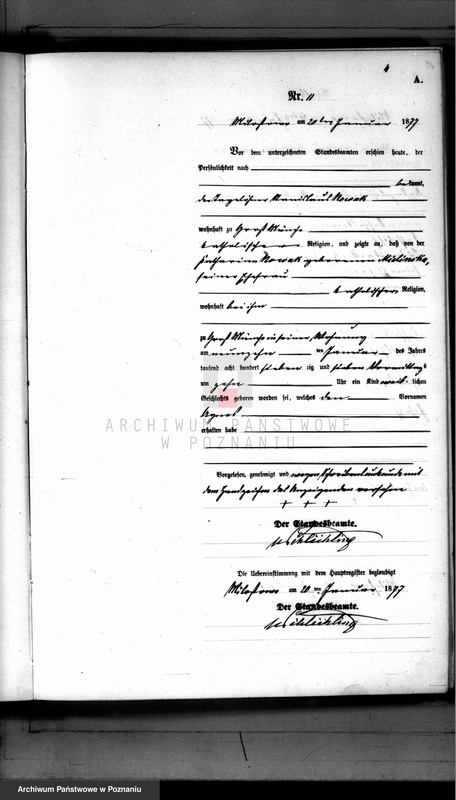 4
A.
Nr. 11
Milostowo am 20ten Januar 1877
Vor dem unterzeichneten Standesbeamten erschien heute, der
Persönlichkeit nach
bekannt,
der Tagelöhner Stanislaus Nowak
wohnhaft zu Groß Münche
katholischer Religion, und zeigte an, daß von der
Katharina Nowak geborenen
seiner Ehefrau
katholischer Religion,
wohnhaft bei ihm
zu Groß Münche in seiner Wohnung
am neunzehnten Januar des Jahres
tausend acht hundert siebenzig und sieben Vormittags
um zehn Uhr ein Kind weiblichen
Geschlechts geboren worden sei, welches den Vornamen
Agnes
erhalten habe
ARCHIWUM PAŃSTWOWE
W POZNANIU
Vorgelesen, genehmigt und wegen Schreibensunkunde mit
dem Handzeichen des Anzeigenden versehen
+ + +
Der Standesbeamte.
Die Uebereinstimmung mit dem Hauptregister beglaubigt
Milostowo am 20ten Januar 1877
Der Standesbeamte.
Archiwum Państwowe w Poznaniu